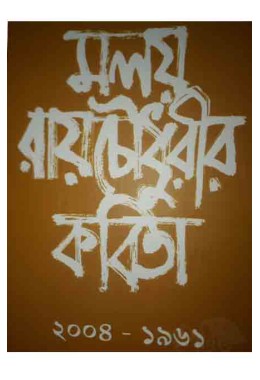 মলয়
রায়চৌধুরীর
কবিতা
২০০৪ - ১৯৬১